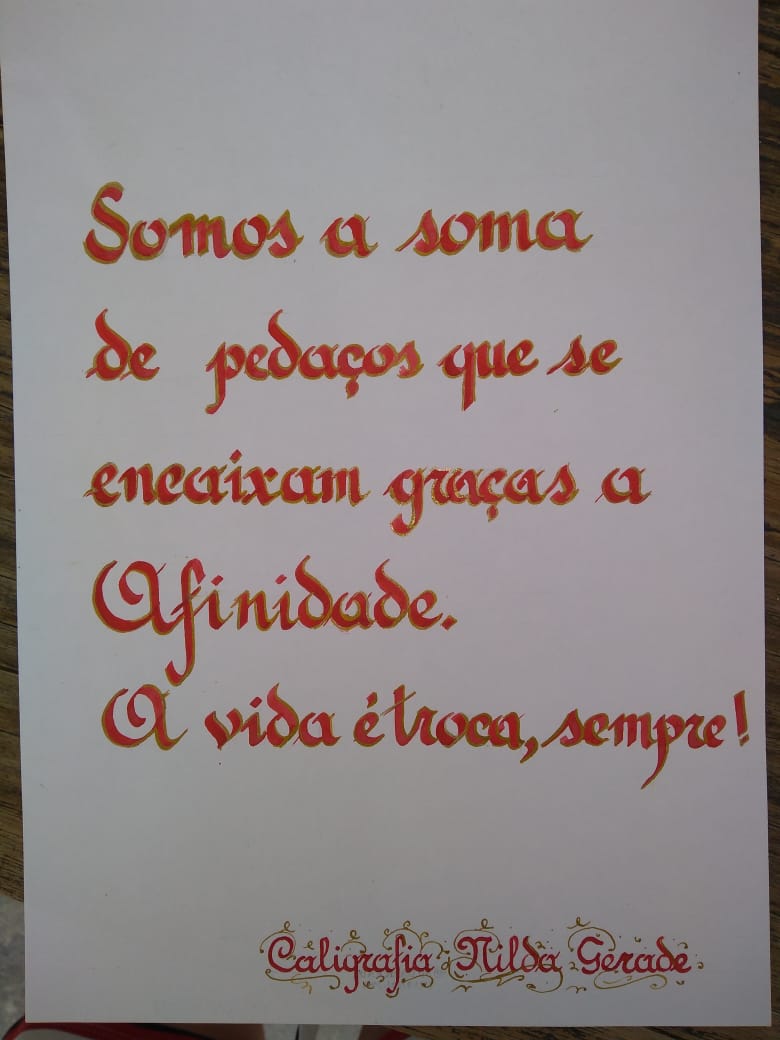 Somos a soma
de pedaços que se
encaixam graças a
Afinidade.
A vida é troca, sempre!
Caligrafia Nilda Gerade